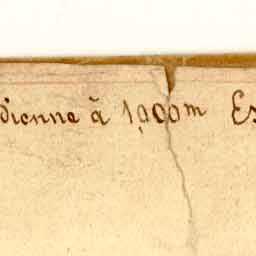 dienne à 1,000m Es